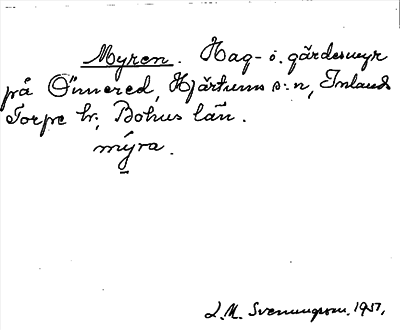 Myren. Hag- o. gärdesmyr
på Önnered, Hjärtums s:n, Inlands
Torpe hr, Bohus län.
mýra.
L.M. Svenungsson. 1917.